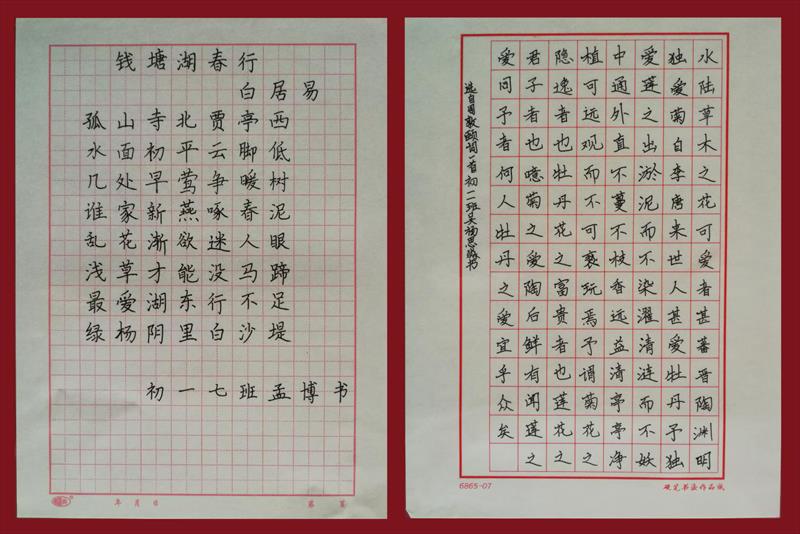 钱塘湖春行
白居易
孤山寺北贾亭西
水面初平云脚低
几处早莺争暖树
谁家新燕啄春泥
乱花渐欲迷人眼
浅草才能没马蹄
最爱湖东行不足
绿杨阴里白沙堤
初一七班孟博书
年 月 日
第 页
水陆草木之花可爱者甚蕃晋陶渊明
独爱菊自李唐来世人甚爱牡丹予独
爱莲之出淤泥而不染濯清涟而不妖
中通外直不蔓不枝香远益清亭亭净
植可远观而不可亵玩焉予谓菊花之
隐逸者也牡丹花之富贵者也莲花之
君子者也噫菊之爱陶后鲜有闻莲之
爱同予者何人牡丹之爱宜乎众矣
选自周敦颐词一首初一二班吴杨思书
6865-07
硬笔书法作品纸